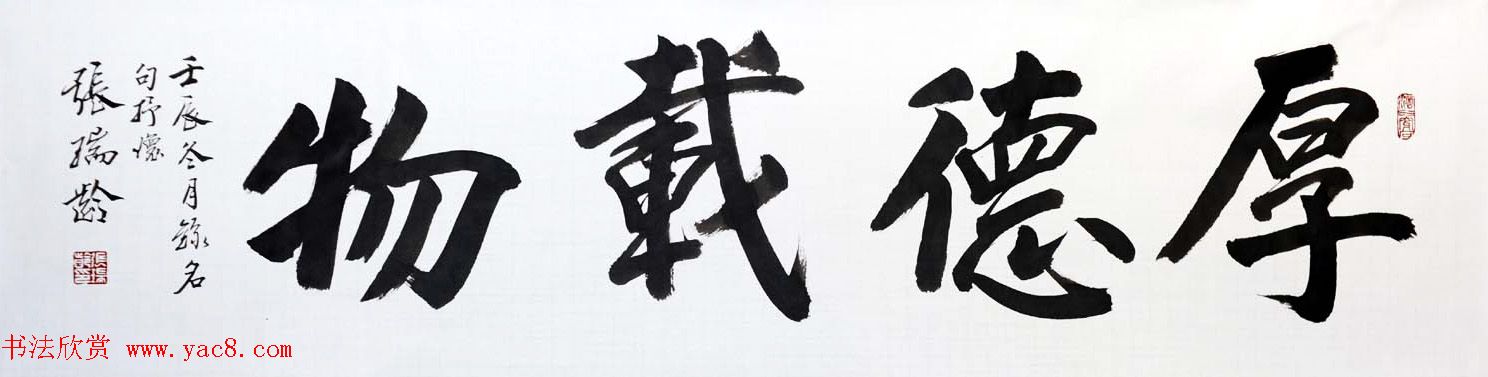 厚德載物
壬辰冬月錄名
句抒懷
張瑞齡
书法欣赏 www.yac8.com